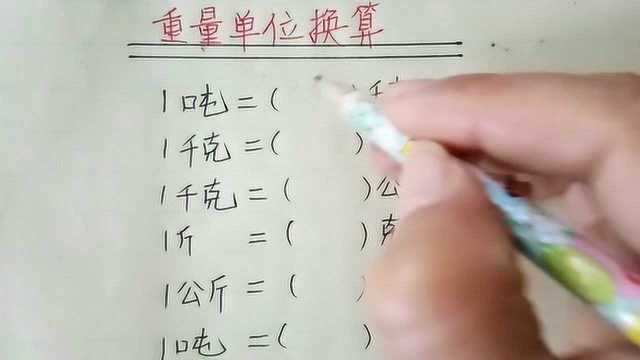 重量单位换算
1吨=( )千
1千克=( )
1千克=( )公
1斤 =( )克
1公斤=( )
1吨=( )